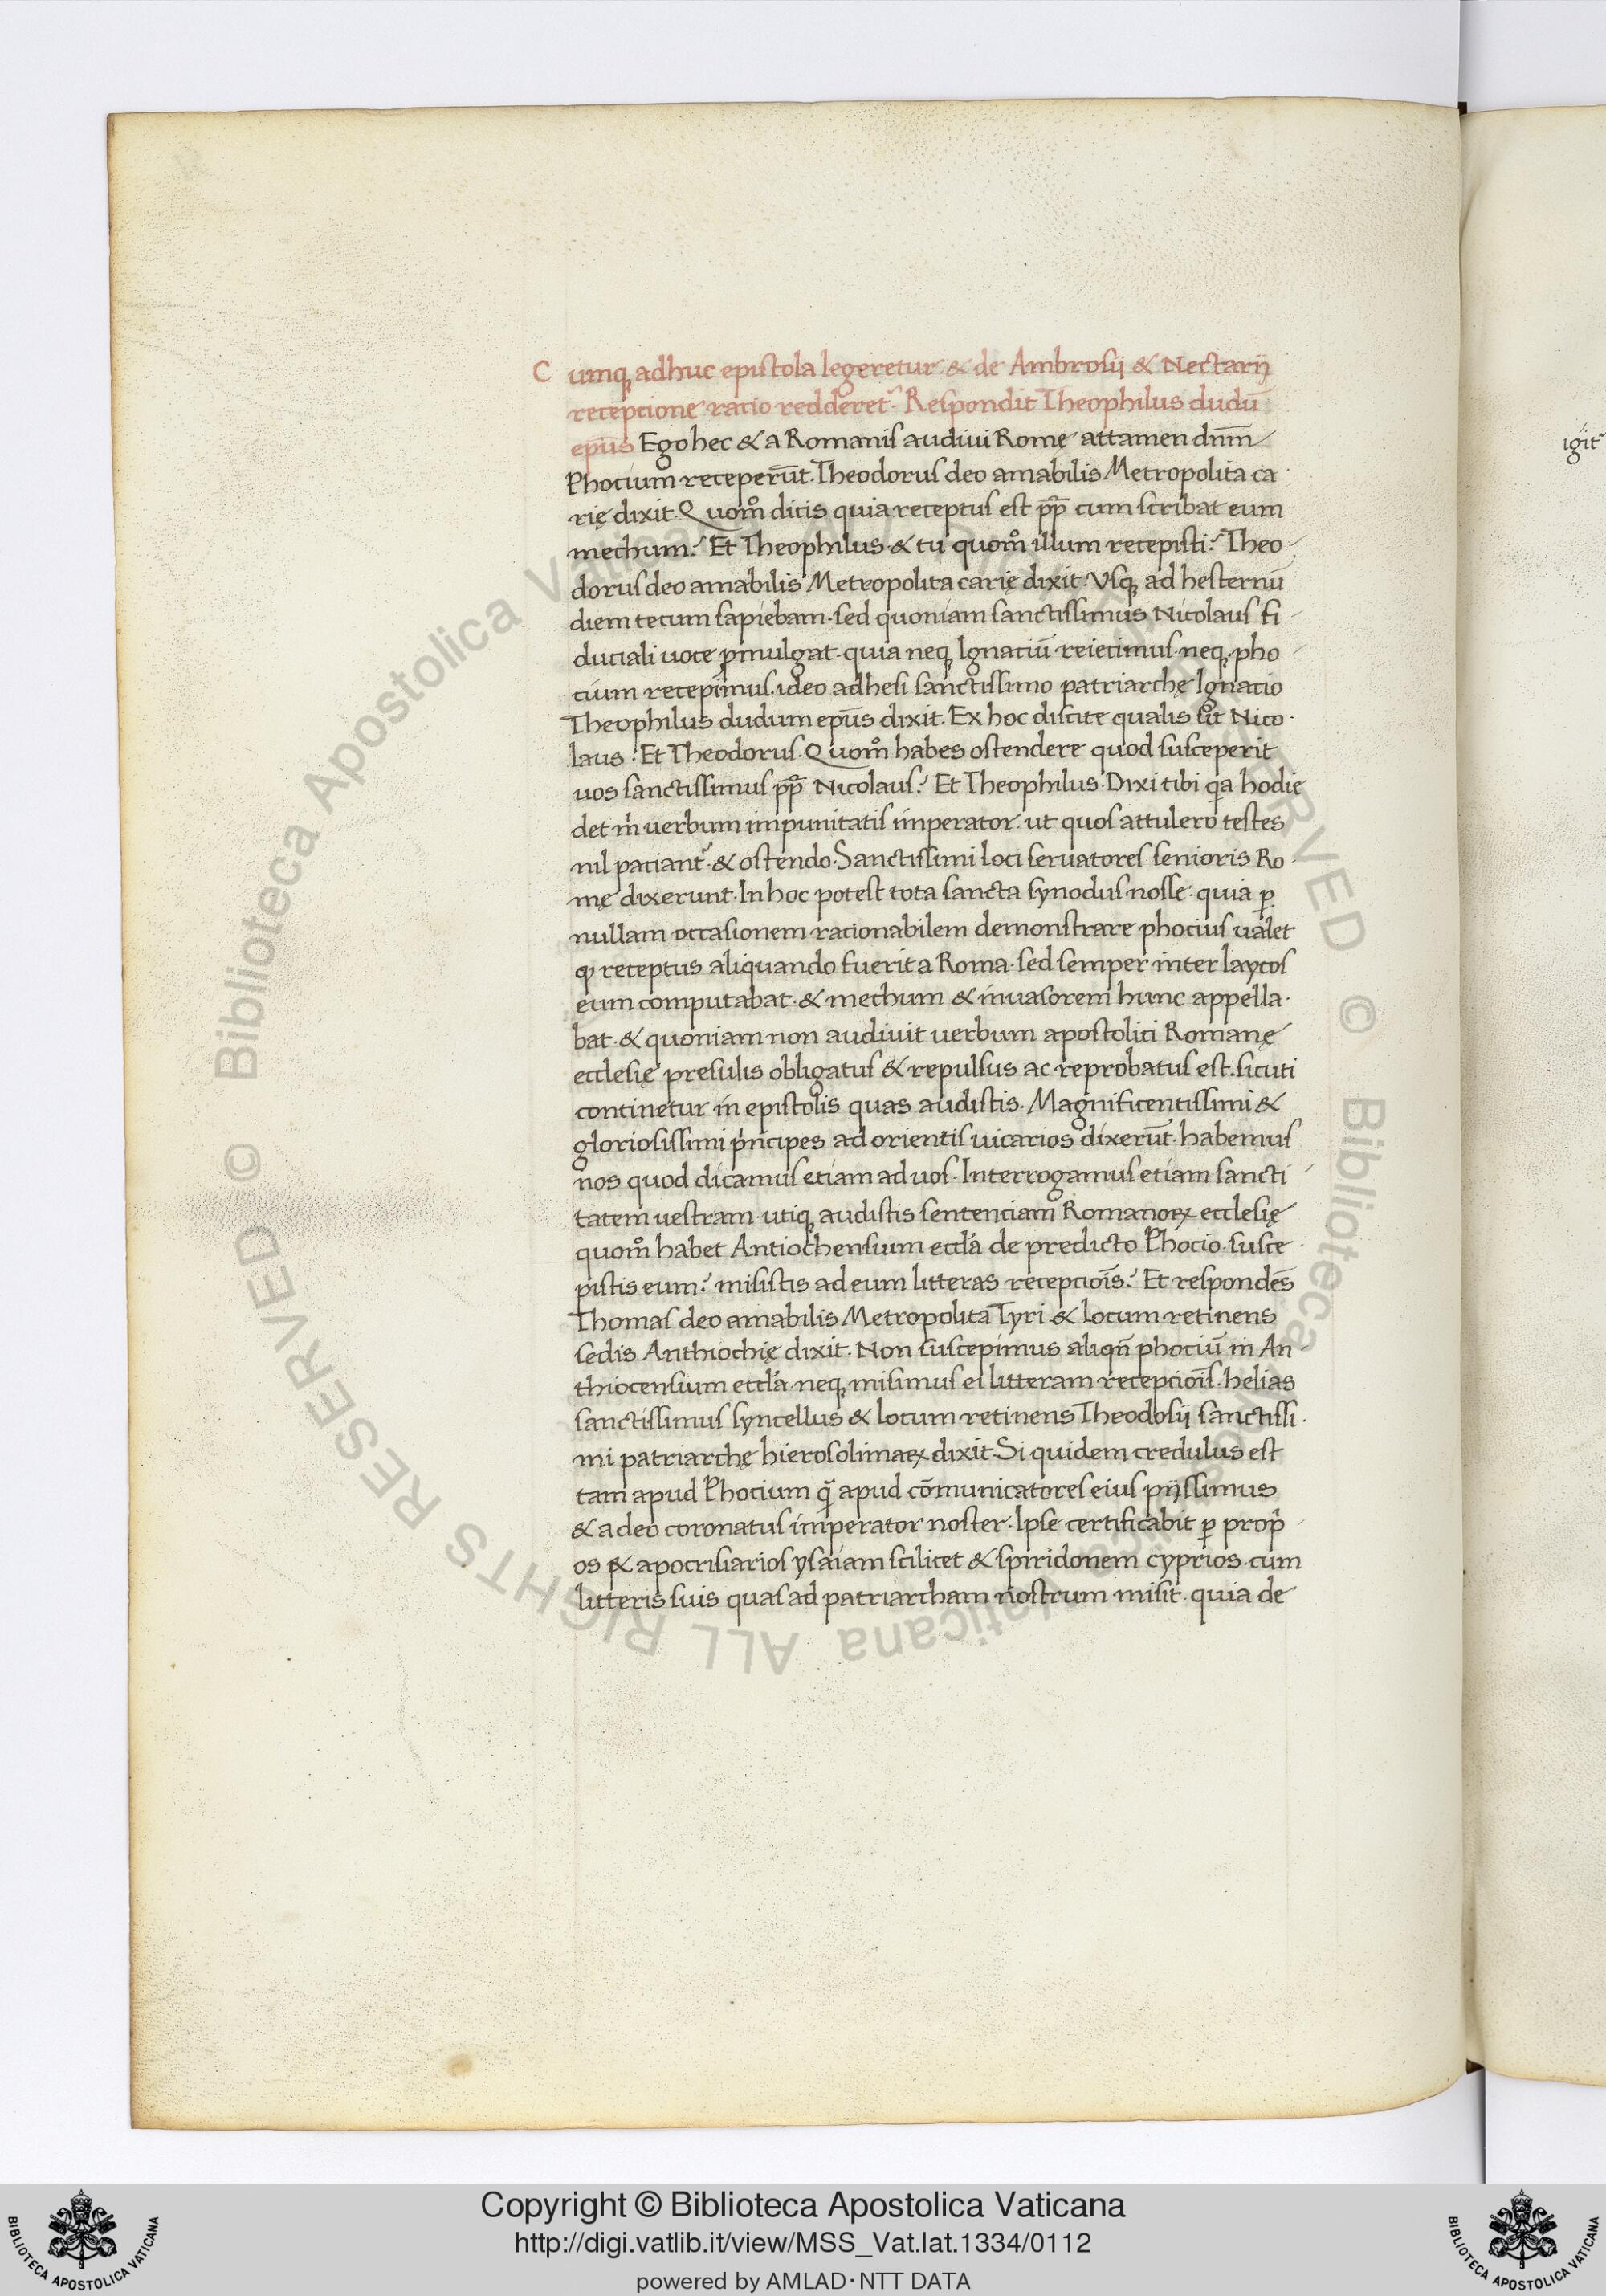 Cumq; adhuc epistola legeretur & de Ambrosij & Nectarij
receptione ratio redderet᷒. Respondit Theophilus dudū
ep̄us Ego hec & a Romanis audiui Rome attamen dn̄m
Phocium receperūt. Theodorus deo amabilis Metropolita ca
rię dixit. Quom̊ dicis quia receptus est pp̄ cum scribat eum
mechum? Et Theophilus & tu quom̊ illum recepisti? Theo
dorus deo amabilis Metropolita carię dixit. Vsq; ad hesternū
diem tecum sapiebam. sed quoniam sanctissimus Nicolaus fi
duciali uoce ꝓmulgat. quia neq; Ignatiū reiecimus. neq; pho
cium recepimus. ideo adhesi sanctissimo patriarchę Ignatio
Theophilus dudum ep̄us dixit. Ex hoc discite qualis sit Nico
laus. Et Theodorus. Quom̊ habes ostendere quod susceperit
uos sanctissimus pp̄ Nicolaus? Et Theophilus. Dixi tibi qa hodie
det m̍ uerbum impunitatis imperator. ut quos attulero testes
nil paciant᷒. & ostendo. Sanctissimi loci seruatores senioris Ro
mę dixerunt. In hoc potest tota sancta synodus nosse. quia ꝑ
nullam occasionem racionabilem demonstrare phocius ualet
ꝙ receptus aliquando fuerit a Roma. sed semper inter laycos
eum computabat. & mechum & inuasorem hunc appella
bat. & quoniam non audiuit uerbum apostolici Romanę
ecclesię presulis obligatus & repulsus ac reprobatus est. sicuti
continetur in epistolis quas audistis. Magnificentissimi &
gloriosissimi pͥncipes ad orientis uicarios dixerūt. habemus
nos quod dicamus etiam ad uos. Interrogamus etiam sancti
tatem uestram. utiq; audistis sentenciam Romanoꝝ ecclesię
quom̊ habet Antiochensium eccl̄a de predicto Phocio. susce
pistis eum? misistis ad eum litteras recepciōis? Et respondēs
Thomas deo amabilis Metropolita Tyri & locum retinens
sedis Anthiochię dixit. Non suscepimus aliqn̄ phociū in An
thiocensium eccl̄a. neq; misimus ei litteram recepciōis. helias
sanctissimus syncellus & locum retinens Theodosij sanctissi
mi patriarchę hierosolimaꝝ dixit. Si quidem credulus est
tam apud Phocium qͣ̄ apud cōmunicatores eius pijssimus
& a deo coronatus imperator noster. Ipse certificabit ꝑ propͥ
os & apocrisiarios ysaiam scilicet & spiridonem cyprios. cum
litteris suis quas ad patriarcham nostrum misit. quia de
igit᷒
Copyright © Biblioteca Apostolica Vaticana
http://digi.vatlib.it/view/MSS_Vat.lat.1334/0112
powered by AMLAD・NTT DATA
BIBLIOTECA APOSTOLICA VATICANA
BIBLIOTECA APOSTOLICA VATICANA